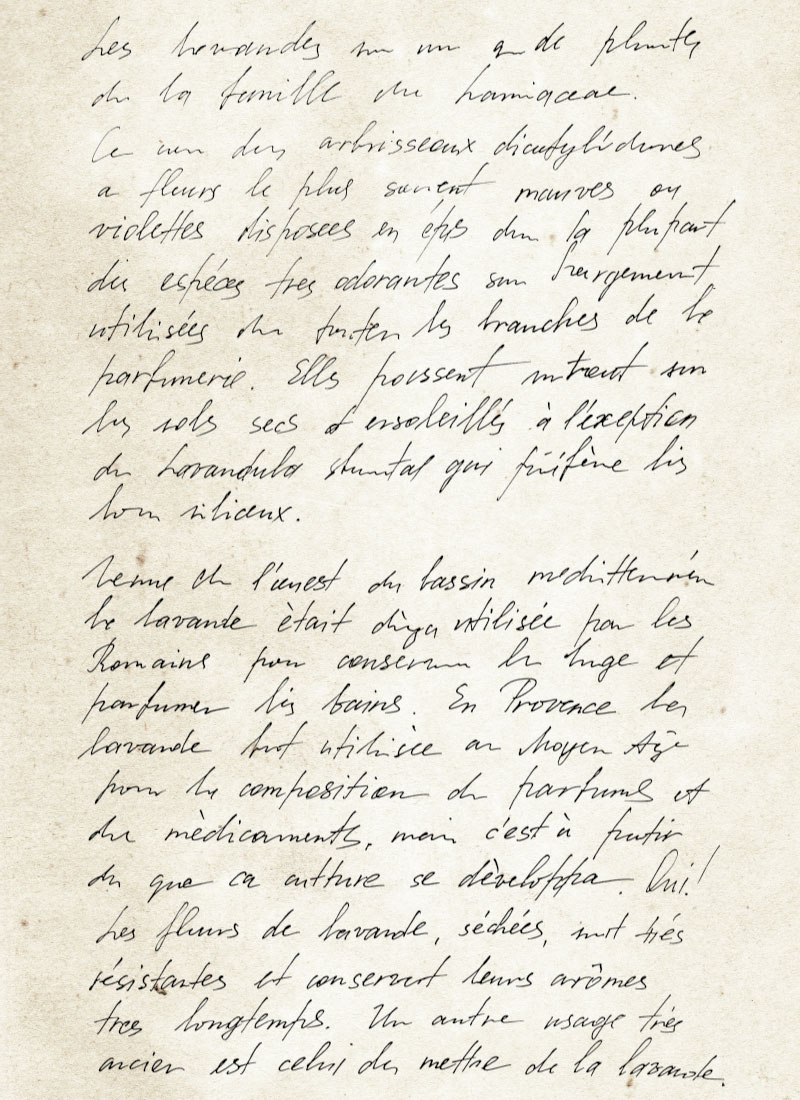 Les lavandes
de la famille des Lamiaceae.
Ce sont des arbrisseaux dicotylédones
a fleurs le plus souvent mauves ou
violettes disposees en épis dans la plupart
des espéces tres odorantes sont largement
utilisées dans toutes les branches de la
parfumerie. Elles poussent surtout sur
les sols secs et ensoleillés à l'exeption
de Lavandula qui préfère les
siliceux.
Venue de l'ouest du bassin
la lavande ètait dèja utilisée par les
Romains pour conserver le linge et
parfumer les bains. En Provence la
lavande fut utilisèe au Moyen Age
pour la composition de parfums et
de mèdicaments, mais c'est à partir
du que sa culture se dèveloppa. Oui!
Les fleurs de lavande, séchées, sont trés
résistantes et conservent leurs arômes
tres longtemps. Un autre usage trés
ancien est celui de mettre de la lavande.